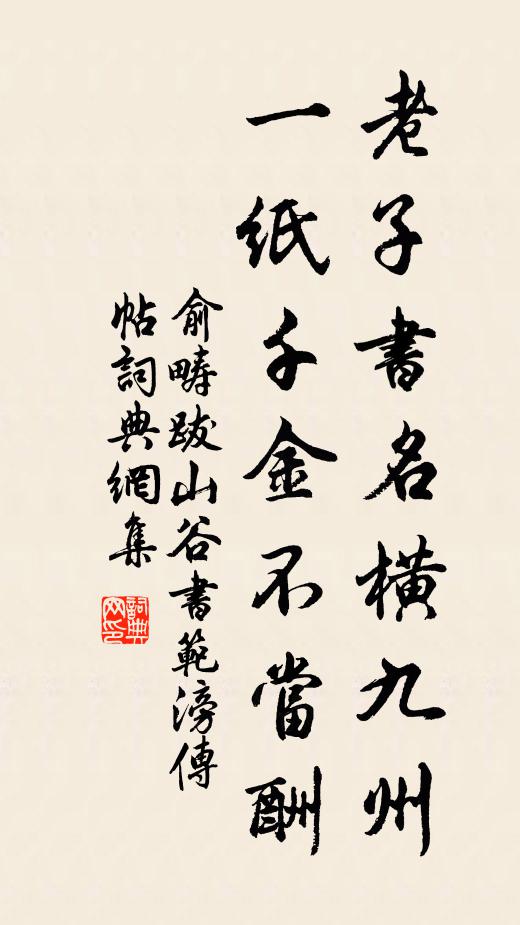 老子書名橫九州
一紙千金不當酬
俞疇跋山谷書範滂傳
帖詞典網集
詞典网印